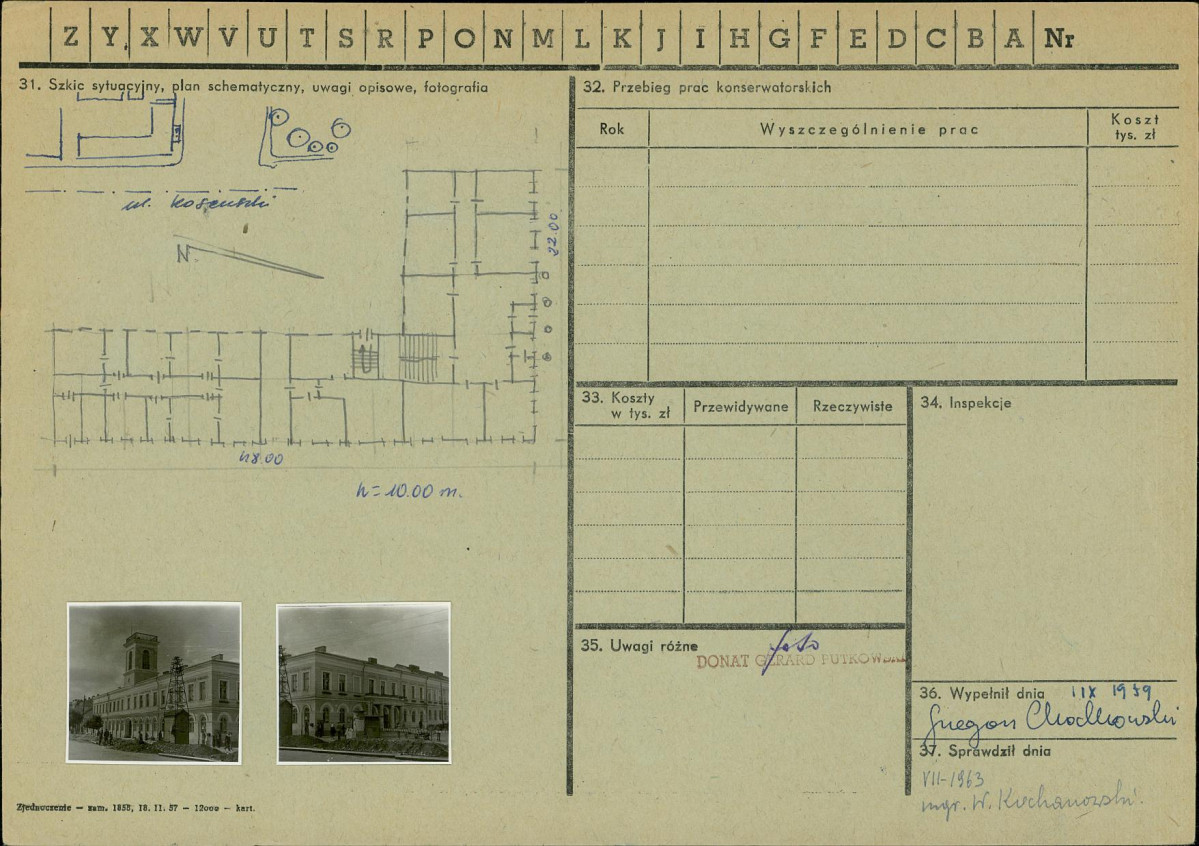 Z Y X W V U T S R P O N M L K J I H G F E D C B A Nr
31. Szkic sytuacyjny, plan schematyczny, uwagi opisowe, fotografia
ul. Kościuszki
N.
22.00
48.00
h = 10.00 m.
Zjednoczenie — zam. 1858, 18. 11. 57 — 12000 — kart.
32. Przebieg prac konserwatorskich
Rok Wyszczególnienie prac Koszt tys. zł
33. Koszty w tys. zł Przewidywane Rzeczywiste
34. Inspekcje
35. Uwagi różne
foto
DONAT GERARD
36. Wypełnił dnia IIX 1959
Grzegorz Chodkowski
37. Sprawdził dnia
VII-1963
mgr. W. Kochanowski.